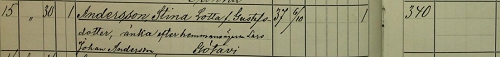 15 " 30 1 Andersson Stina Lotta f. Gustafs- 37 6/10 1 340
dotter, änka efter hemmansägaren Lars
Johan Andersson